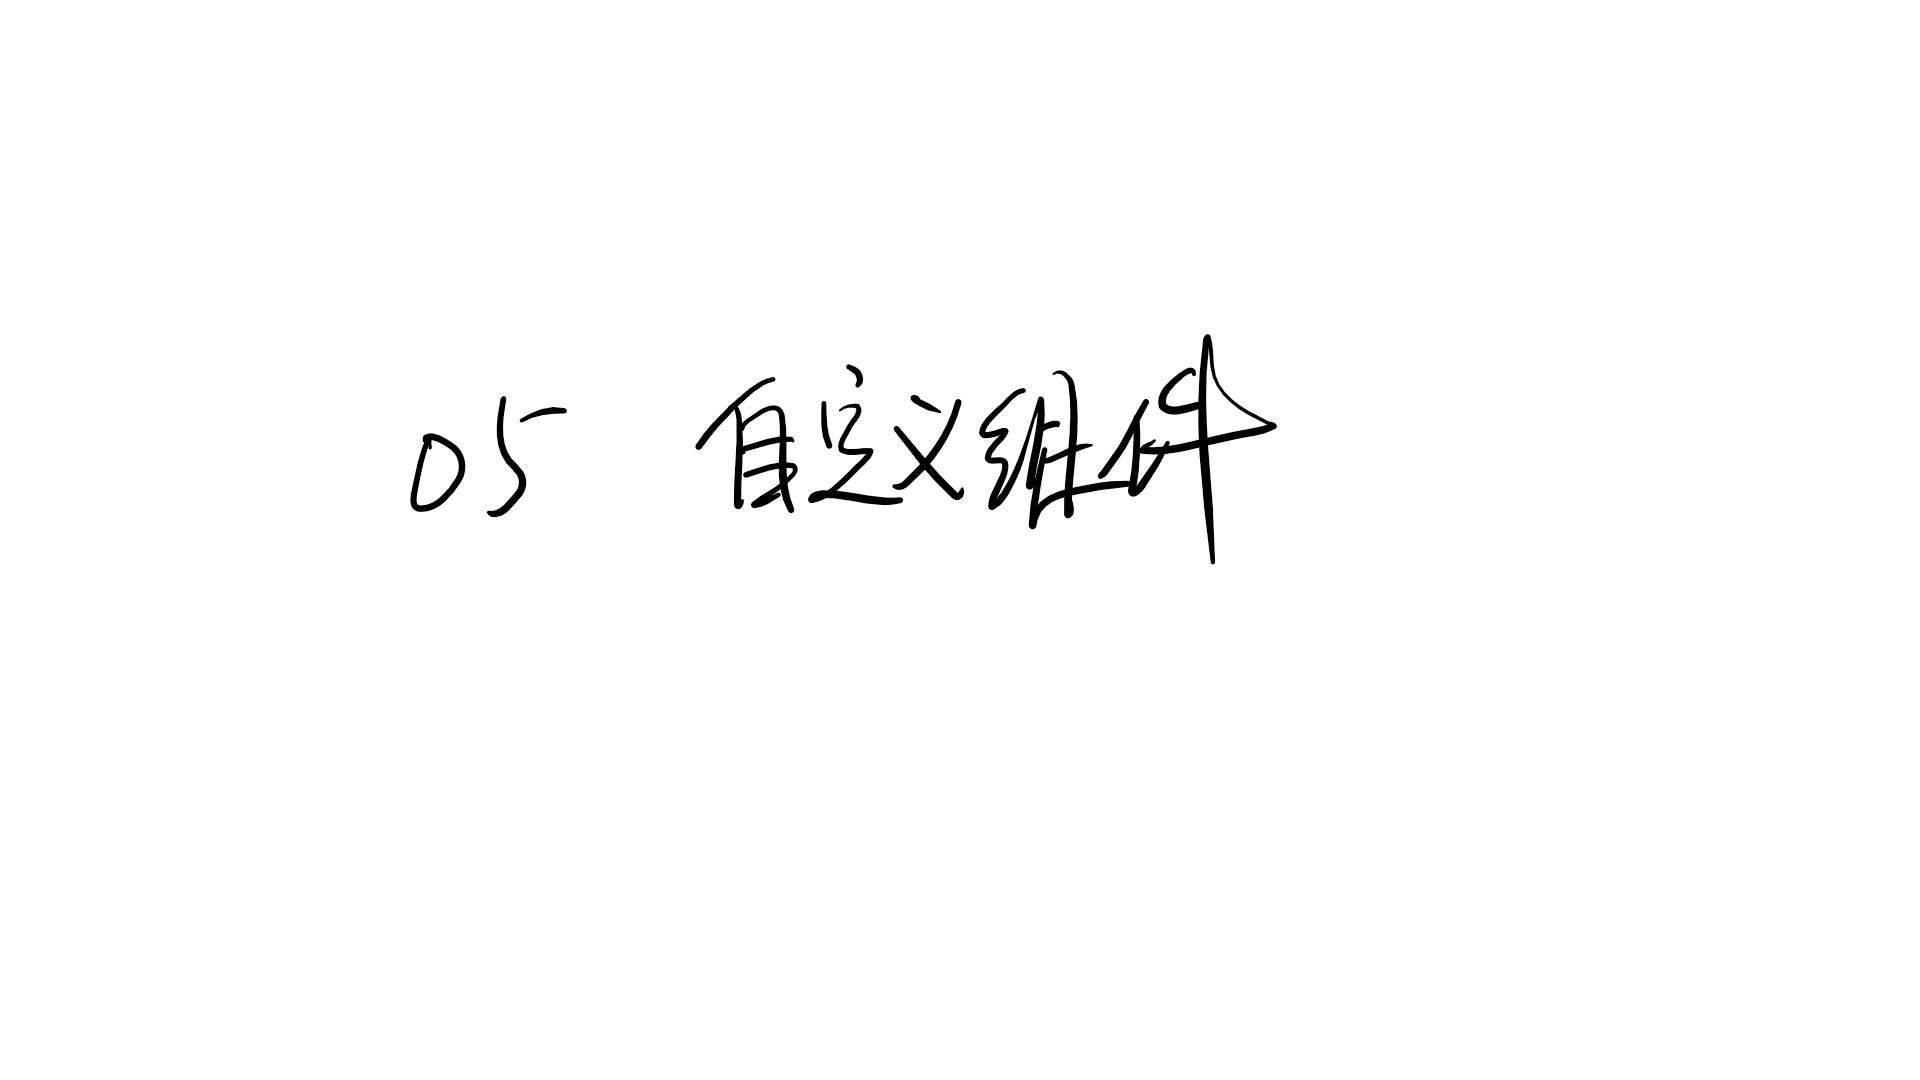 05 自定义组件